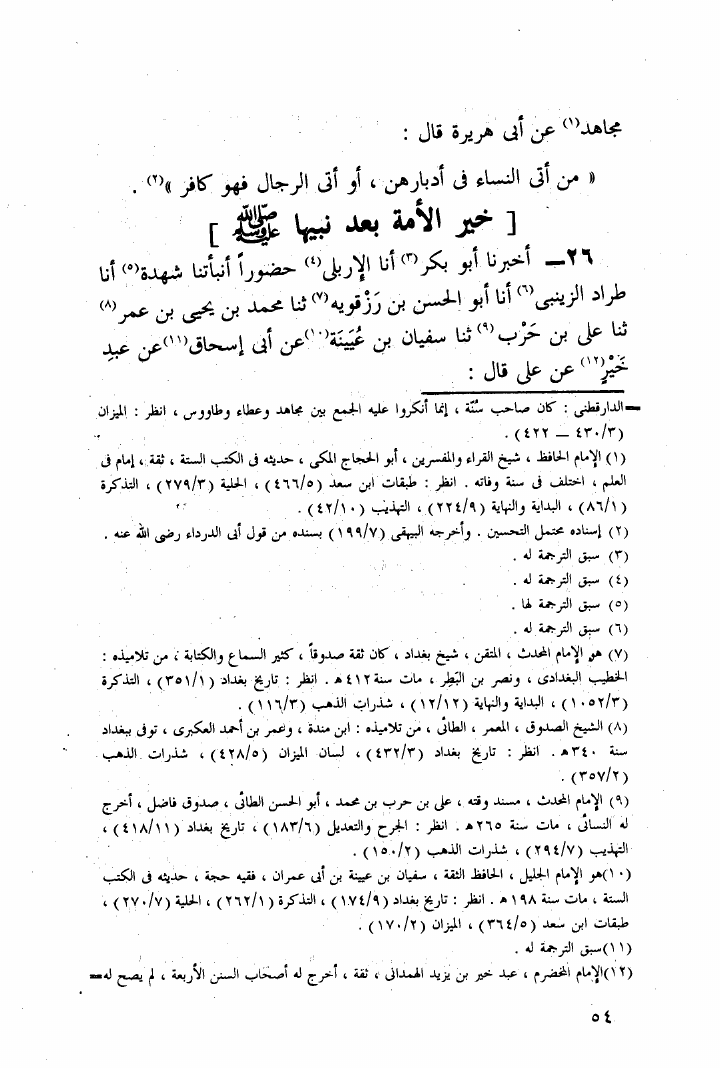 مجاهد(١) عن أبى هريرة قال :
« من أتى النساء فى أدبارهن ، أو أتى الرجال فهو كافر »(٢) .
[ خير الأمة بعد نبيها ﷺ ]
٢٦ــ أخبرنا أبو بكر(٣) أنا الإربلى(٤) حضوراً أنبأتنا شهدة(٥) أنا
طراد الزينبى(٦) أنا أبو الحسن بن رَزْقويه(٧) ثنا محمد بن يحيى بن عمر(٨)
ثنا على بن حَرْب(٩) ثنا سفيان بن عُيَيَنَة(١٠) عن أبى إسحاق(١١) عن عبدِ
خَيْرٍ(١٢) عن على قال :
=الدارقطنى : كان صاحب سُنّة ، إنما أنكروا عليه الجمع بين مجاهد وعطاء وطاووس ، انظر : الميزان
(٤٣٠/٣ ــ ٤٢٢) .
(١) الإمام الحافظ ، شيخ القراء والمفسرين ، أبو الحجاج المكى ، حديثه فى الكتب الستة ، ثقة ، إمام فى
العلم ، اختلف فى سنة وفاته . انظر : طبقات ابن سعد (٤٦٦/٥) ، الحلية (٢٧٩/٣) ، التذكرة
(٨٦/١) ، البداية والنهاية (٢٢٤/٩) ، التهذيب (٤٢/١٠) .
(٢) إسناده محتمل التحسين . وأخرجه البيهقى (١٩٩/٧) بسنده من قول أبى الدرداء رضى الله عنه .
(٣) سبق الترجمة له .
(٤) سبق الترجمة له .
(٥) سبق الترجمة لها .
(٦) سبق الترجمة له .
(٧) هو الإمام المحدث ، المتقن ، شيخ بغداد ، كان ثقة صدوقاً ، كثير السماع والكتابة ، من تلاميذه :
الخطيب البغدادى ، ونصر بن البَطِر ، مات سنة ٤١٢هـ . انظر : تاريخ بغداد (٣٥١/١) ، التذكرة
(١٠٥٢/٣) ، البداية والنهاية (١٢/١٢) ، شذرات الذهب (١١٦/٣) .
(٨) الشيخ الصدوق ، المعمر ، الطائى ، من تلاميذه : ابن مندة ، وعمر بن أحمد العكبرى ، توفى ببغداد
سنة ٣٤٠هـ . انظر : تاريخ بغداد (٤٣٢/٣) ، لسان الميزان (٤٢٨/٥) ، شذرات الذهب
(٣٥٧/٢) .
(٩) الإمام المحدث ، مسند وقته ، على بن حرب بن محمد ، أبو الحسن الطائى ، صدوق فاضل ، أخرج
له النسائى ، مات سنة ٢٦٥هـ . انظر : الجرح والتعديل (١٨٣/٦) ، تاريخ بغداد (٤١٨/١١) ،
التهذيب (٢٩٤/٧) ، شذرات الذهب (١٥٠/٢) .
(١٠)هو الإمام الجليل ، الحافظ الثقة ، سفيان بن عيينة بن أبى عمران ، فقيه حجة ، حديثه فى الكتب
الستة ، مات سنة ١٩٨هـ . انظر : تاريخ بغداد (١٧٤/٩) ، التذكرة (٢٦٢/١) ، الحلية (٢٧٠/٧) ،
طبقات ابن سعد (٣٦٤/٥) ، الميزان (١٧٠/٢) .
(١١)سبق الترجمة له .
(١٢)الإمام المخضرم ، عبد خير بن يزيد الهمدانى ، ثقة ، أخرج له أصحاب السنن الأربعة ، لم يصح له=
٥٤